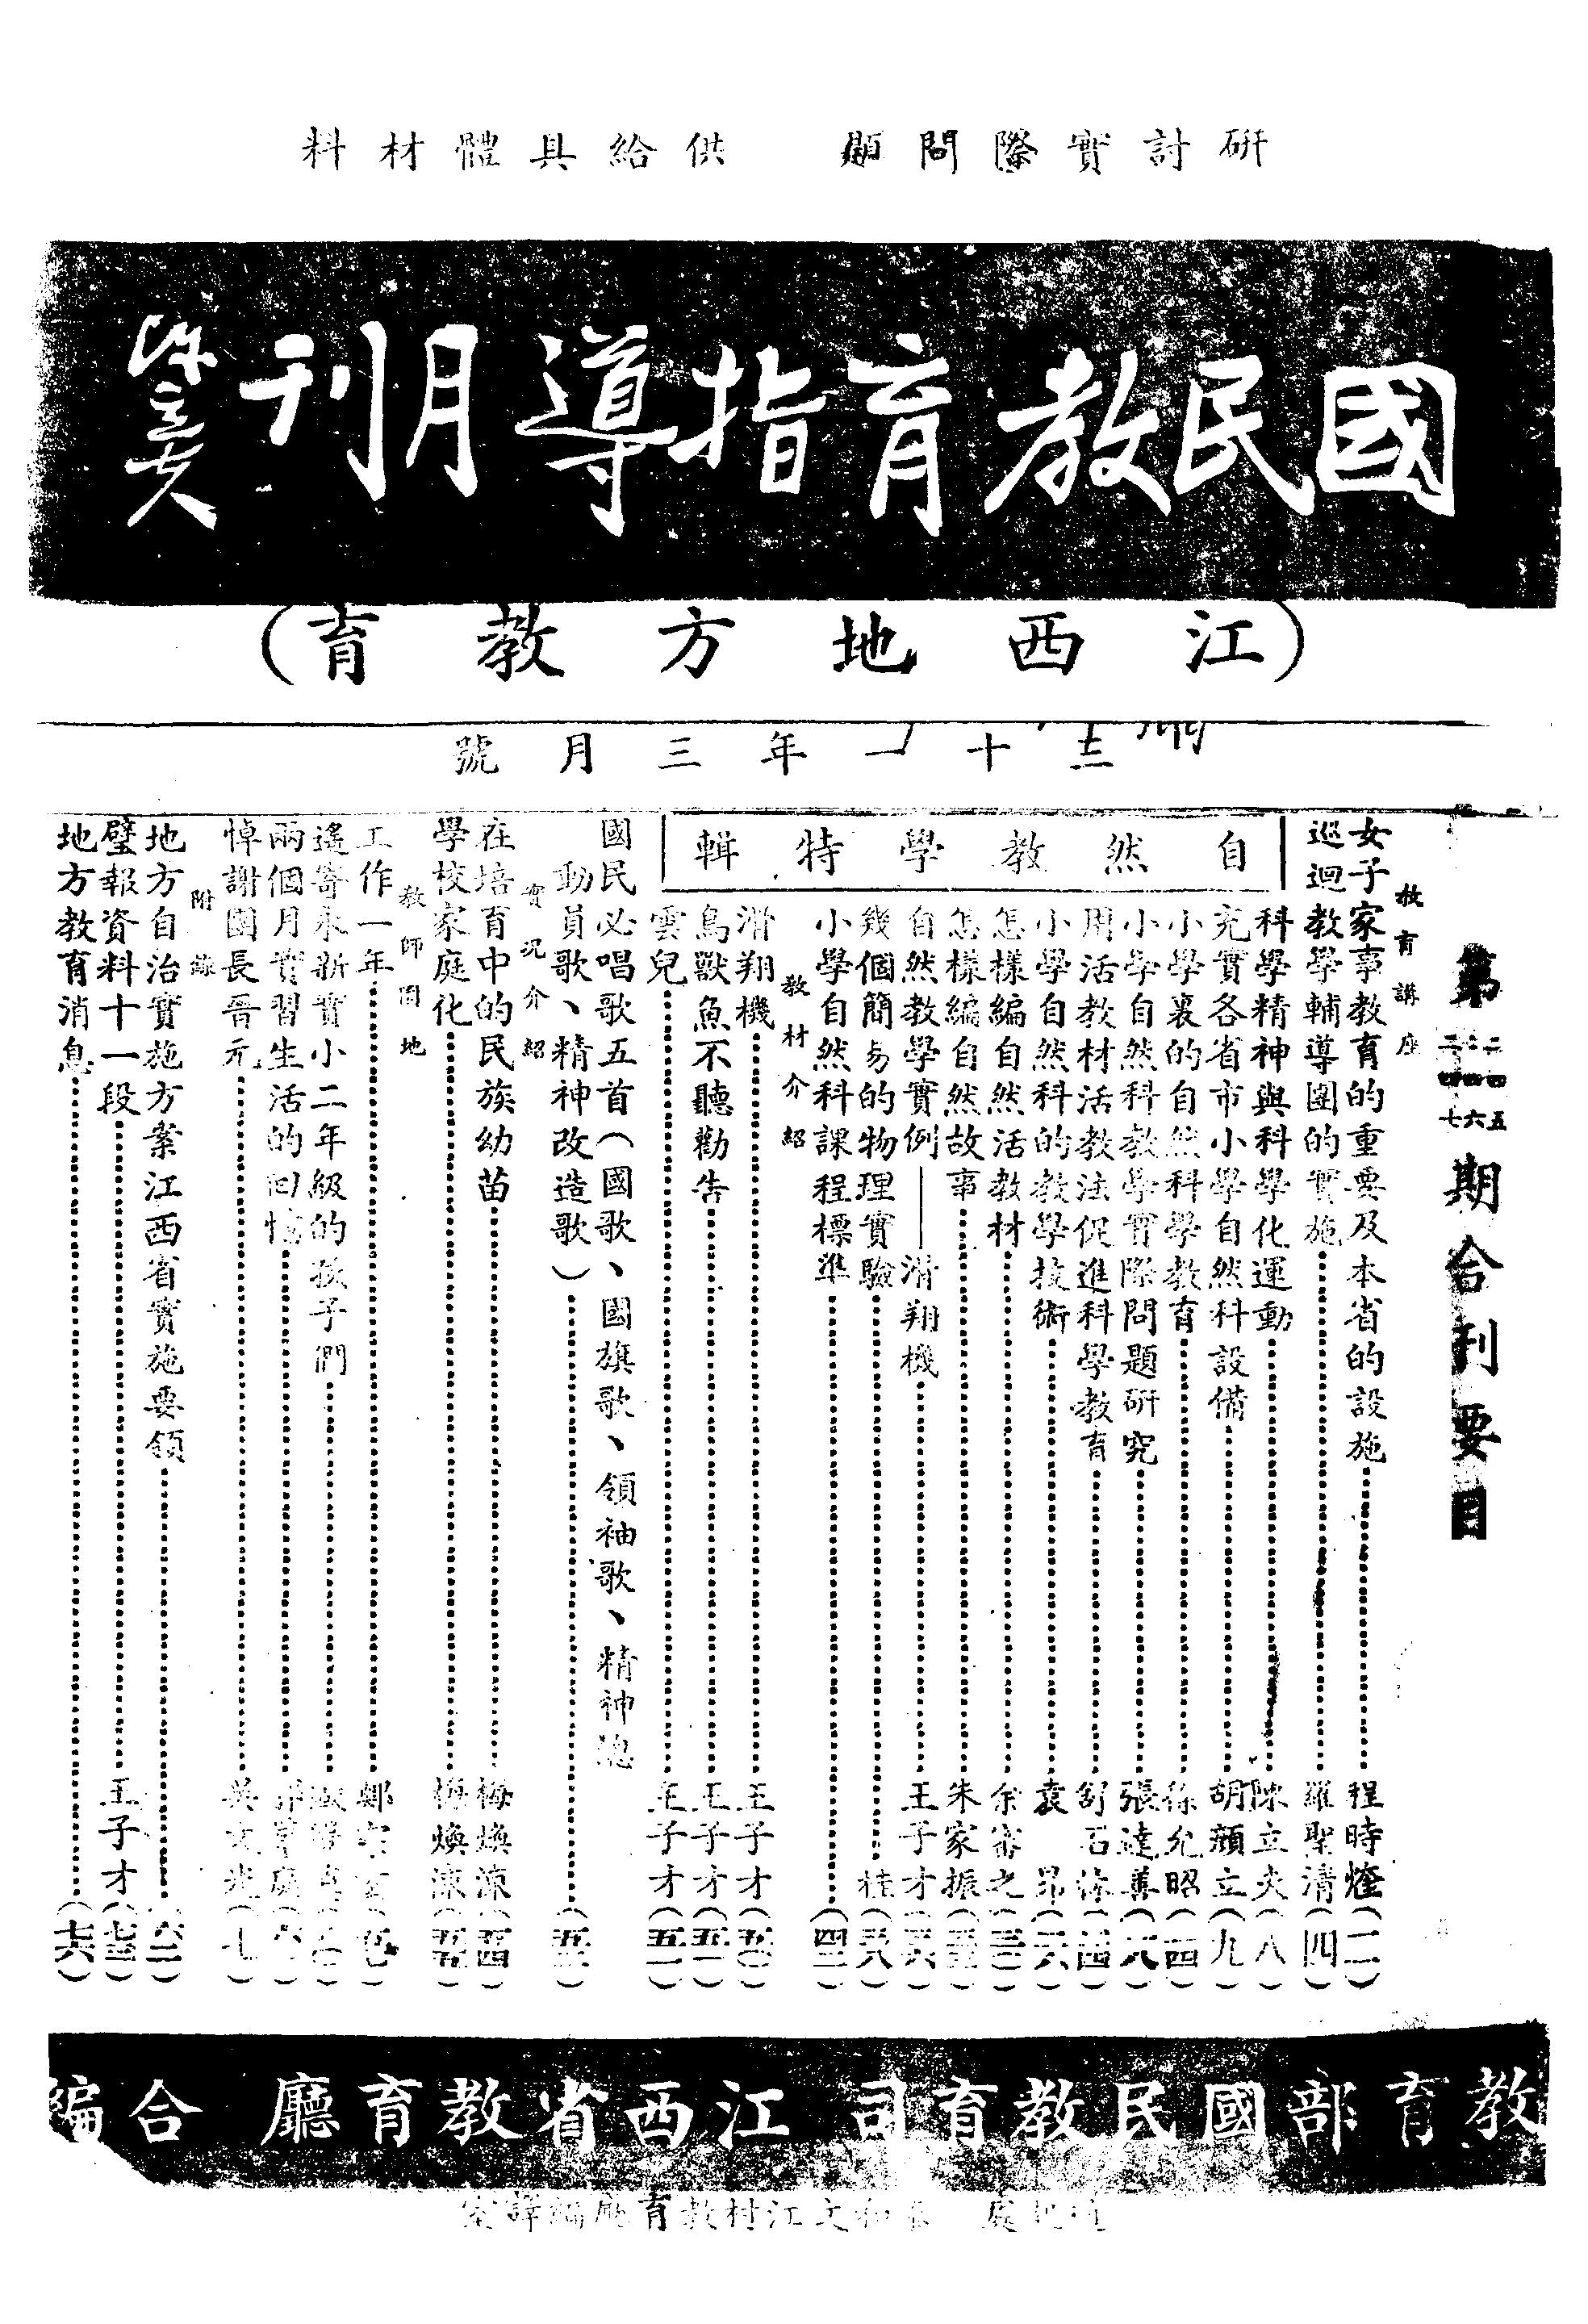 研討實際問題　供給具體材料
國民教育指導月刊
陳立夫
(江西地方教育)
三十一年三月號
期合刊要目
教育講座
女子家事教育的重要及本省的設施……程時煃(二)
巡迴教學輔導團的實施……羅聖清(四)
自然教學特輯
科學精神與科學化運動……陳立夫(八)
充實各省市小學自然科設備……胡顏立(九)
小學裏的自然科學教育……徐允昭(一四)
小學自然科教學實際問題研究……張達善(一八)
用活教材活教法促進科學教育……
小學自然科的教學技術……袁昂
怎樣編自然活教材……余審之
怎樣編自然故事……朱家振
自然教學實例——滑翔機……王子才
幾個簡易的物理實驗……桂(三八)
小學自然科課程標準……(四三)
教材介紹
滑翔機……王子才(五〇)
鳥獸魚不聽勸告……王子才(五一)
雲兒……王子才(五一)
國民必唱歌五首(國歌、國旗歌、領袖歌、精神總
動員歌、精神改造歌)……
實況介紹
在培育中的民族幼苗……梅煥涑(五四)
學校家庭化……梅煥涑
教師園地
工作一年……
遙寄永新實小二年級的孩子們……
兩個月實習生活的回憶……
悼謝團長晋元……吳文光
附錄
地方自治實施方案江西省實施要領……
壁報資料十一段……王子才(七三)
地方教育消息……(七六)
教育部國民教育司　江西省教育廳　合編